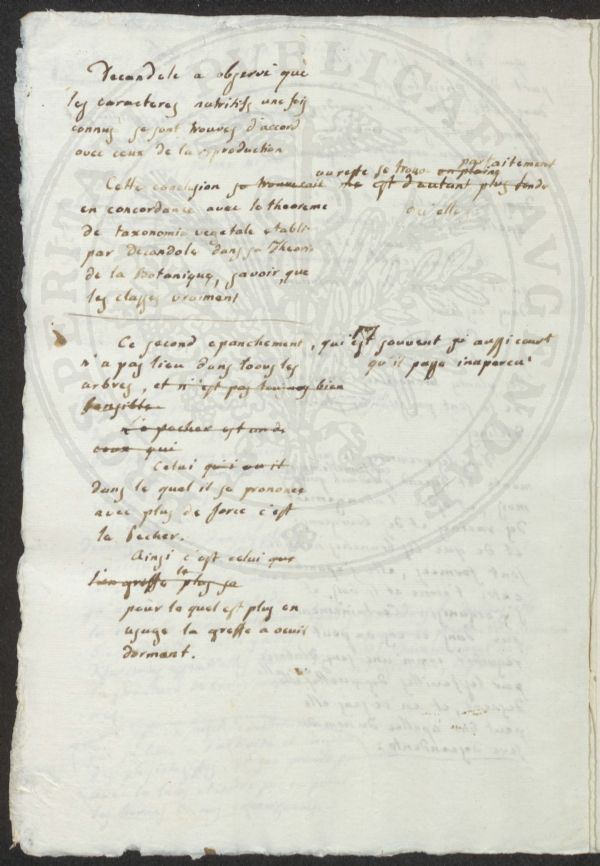 Decandole a observé que
les caracteres nutritifs une fois
connus se sont trouvés d'accord
avec ceux de la reproduction
au reste se trouve parfaitement
Cette conclusion se trouverait en pleine
ne est d'autant plus fondé
en concordance avec le theoreme
qu'elle
de taxonomie vegetale etabli
par Decandole dans sa Theorie
de la Botanique, savoir, que
les classes vraiment
Ce second epanchement, qui est souvent si aussi court
n'a pas lieu dans tous les
qu'il passe inapercu
arbres, et n'est pas toujours bien
sensible
Le pecher est un de
ceux qui
Celui qui ou il
dans le quel il se prononce
avec plus de force c'est
le Pecher.
Ainsi c'est celui que
l'on greffe le plus se
pour le quel est plus en
usage la greffe a oeuil
dormant.